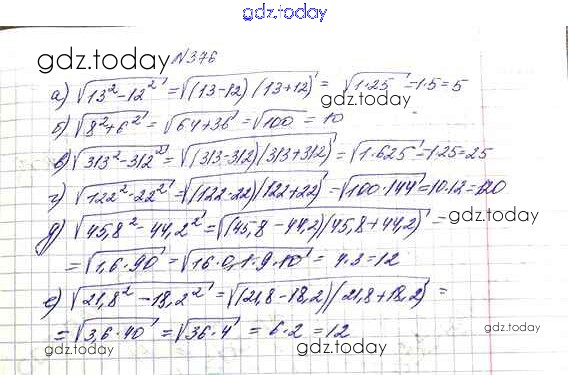 gdz.today
gdz.today N376
а) √(13² - 12²) = √((13-12)(13+12)) = √(1·25) = 1·5 = 5
gdz.today
б) √(8² + 6²) = √(64+36) = √100 = 10
в) √(313² - 312²) = √((313-312)(313+312)) = √(1·625) = 1·25 = 25
г) √(122² - 22²) = √((122-22)(122+22)) = √(100·144) = 10·12 = 120
д) √(45,8² - 44,2²) = √((45,8 - 44,2)(45,8 + 44,2)) =
gdz.today
= √(1,6·90) = √(16·0,1·9·10) = 4·3 = 12
е) √(21,8² - 18,2²) = √((21,8 - 18,2)(21,8 + 18,2)) =
= √(3,6·40) = √(36·4) = 6·2 = 12
gdz.today
gdz.today
gdz.today